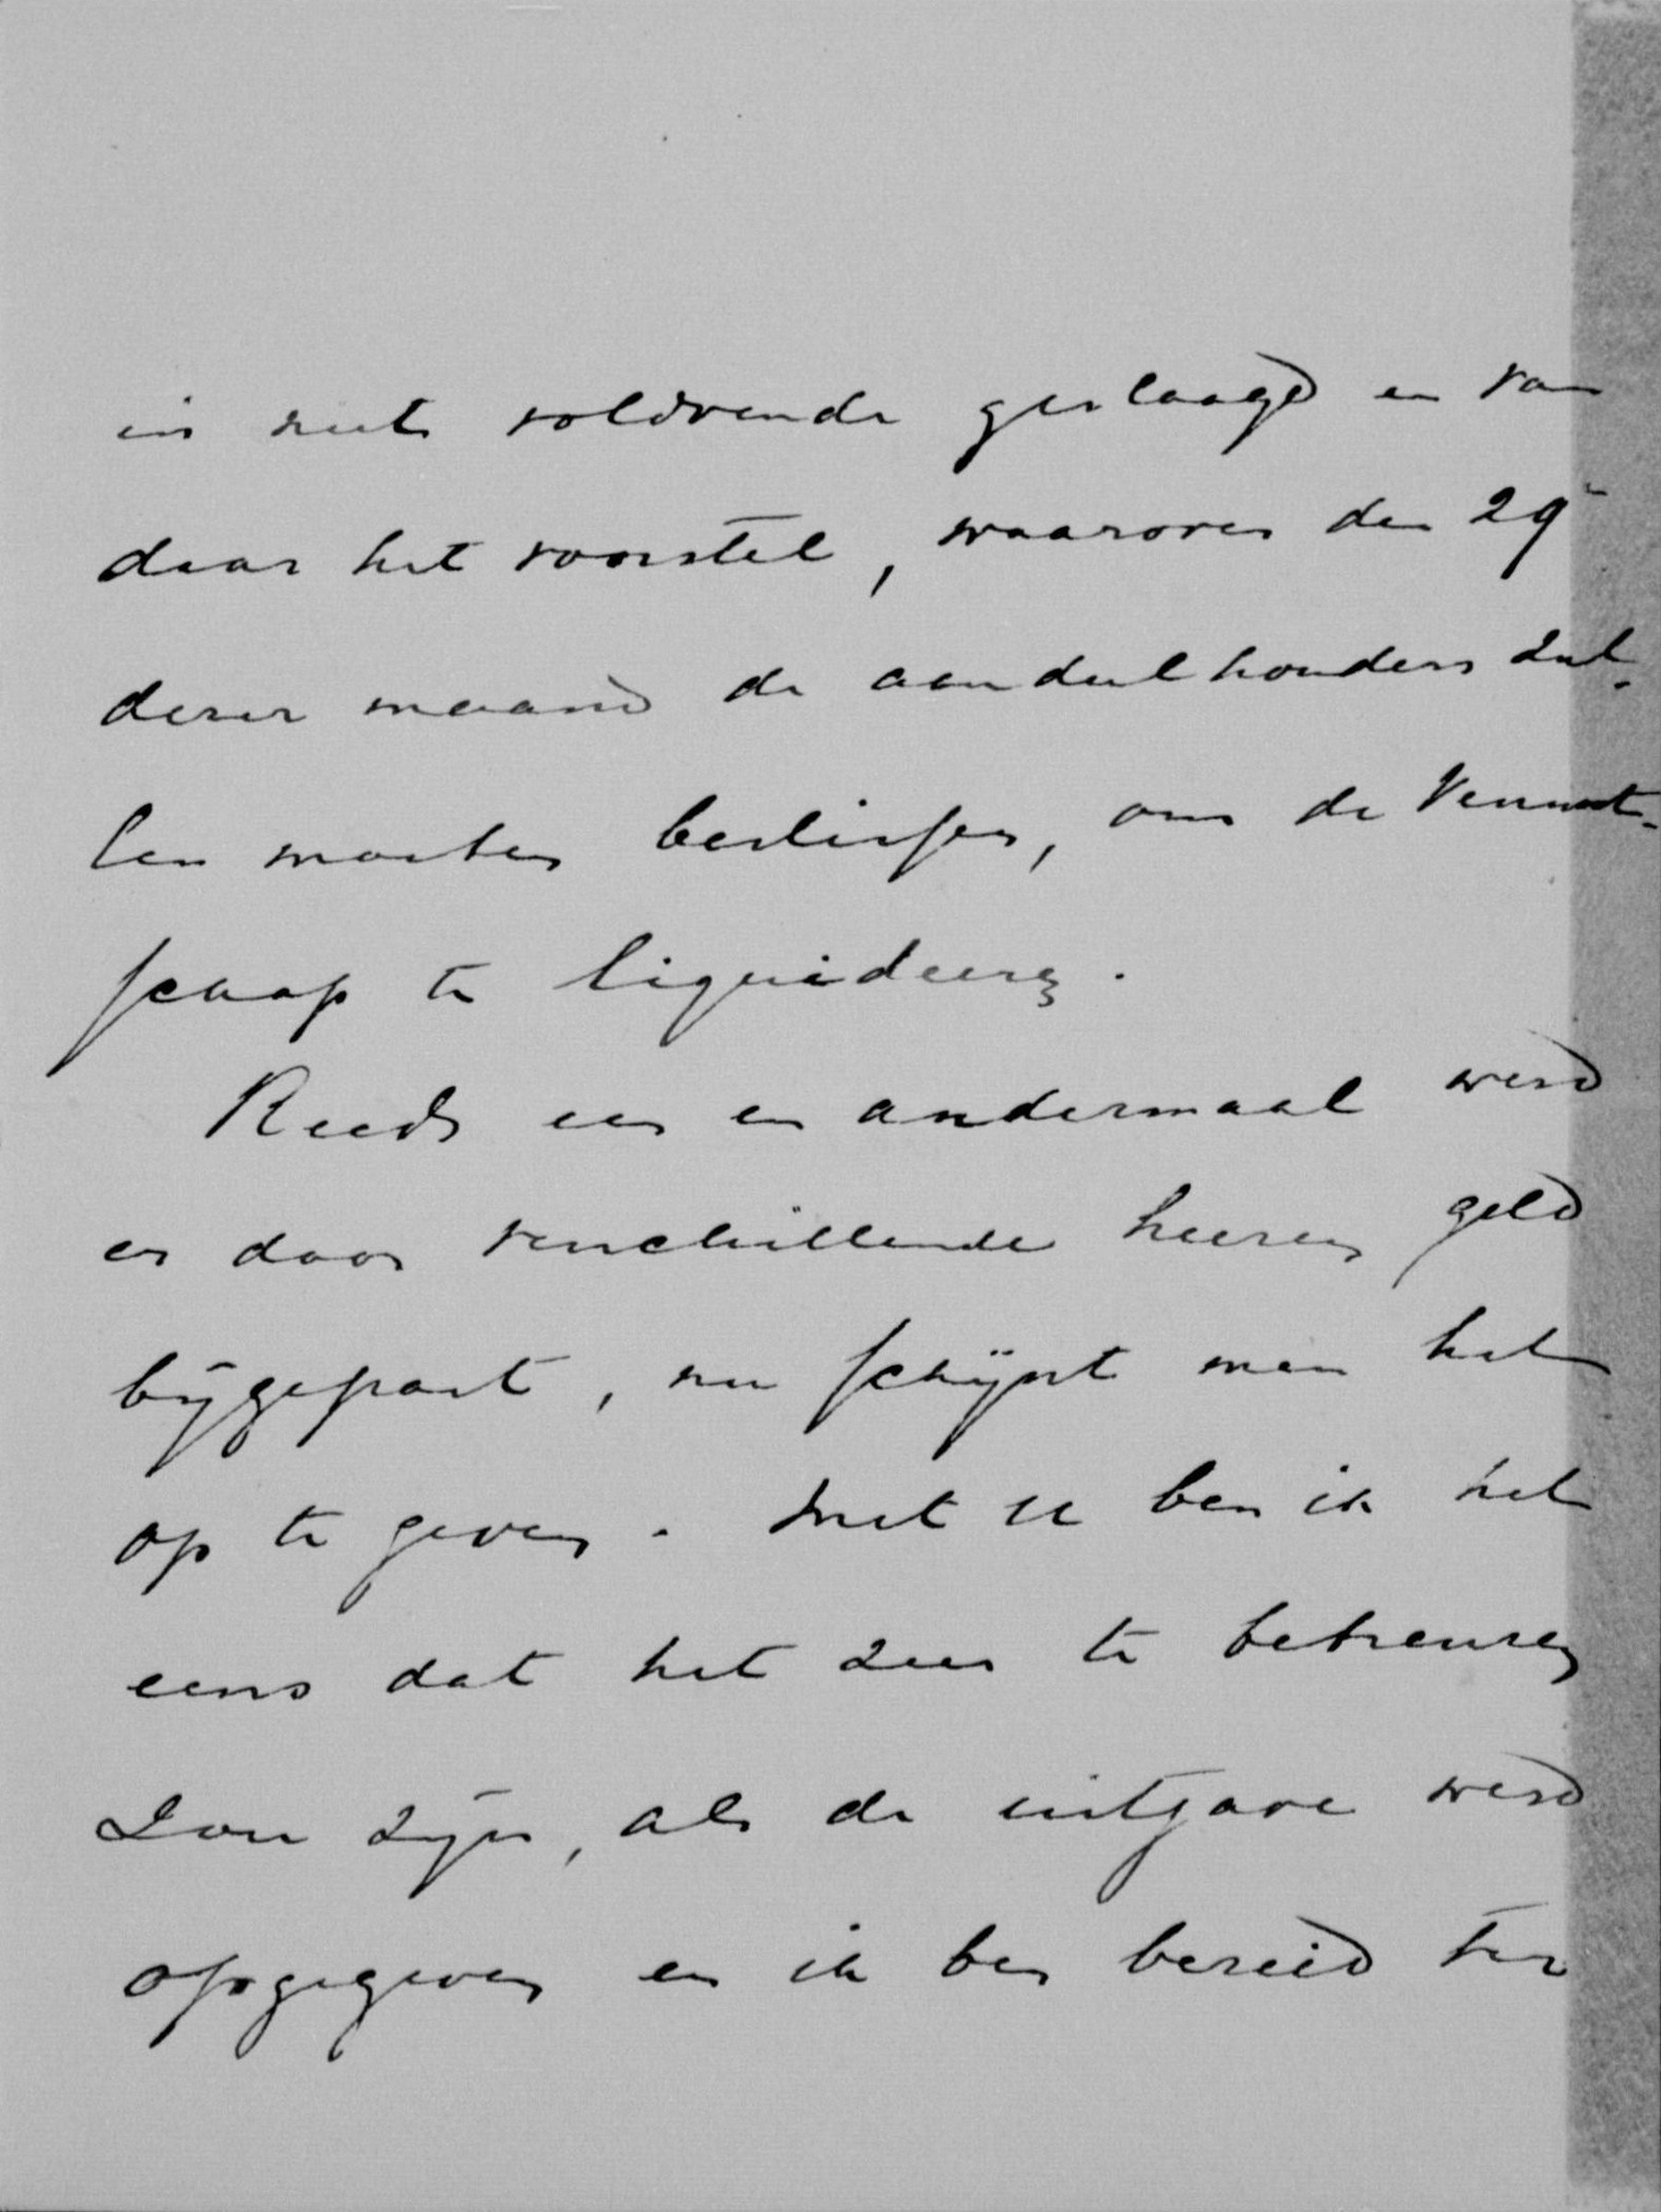 is niet voldoende geslaagd en van
daar het voorstel, waarover den 29
dezer maand de aandeelhouders zul-
len moeten beslissen, om de Vennoot-
schap te liquideeren.
Reeds een en andermaal werd
er door verschillende heeren geld
bijgepast, nu schijnt men het
op te geven. Met u ben ik het
eens dat het zeer te betreuren
zou zijn, als de uitgave werd
opgegeven en ik ben bereid ter